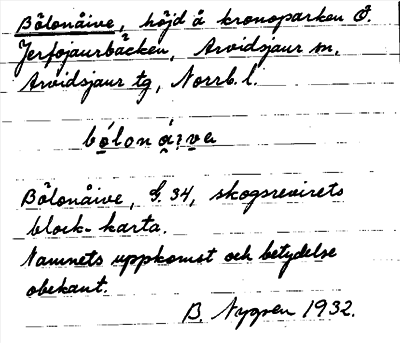 Bölonåive, höjd å kronoparken Ö.
Jerfojaurbäcken, Arvidsjaur sn.
Arvidsjaur tg, Norrb. l.
Bölonåive, G. 34, skogsrevirets
block-karta.
Namnets uppkomst och betydelse
obekant.
B. Nygren 1932.